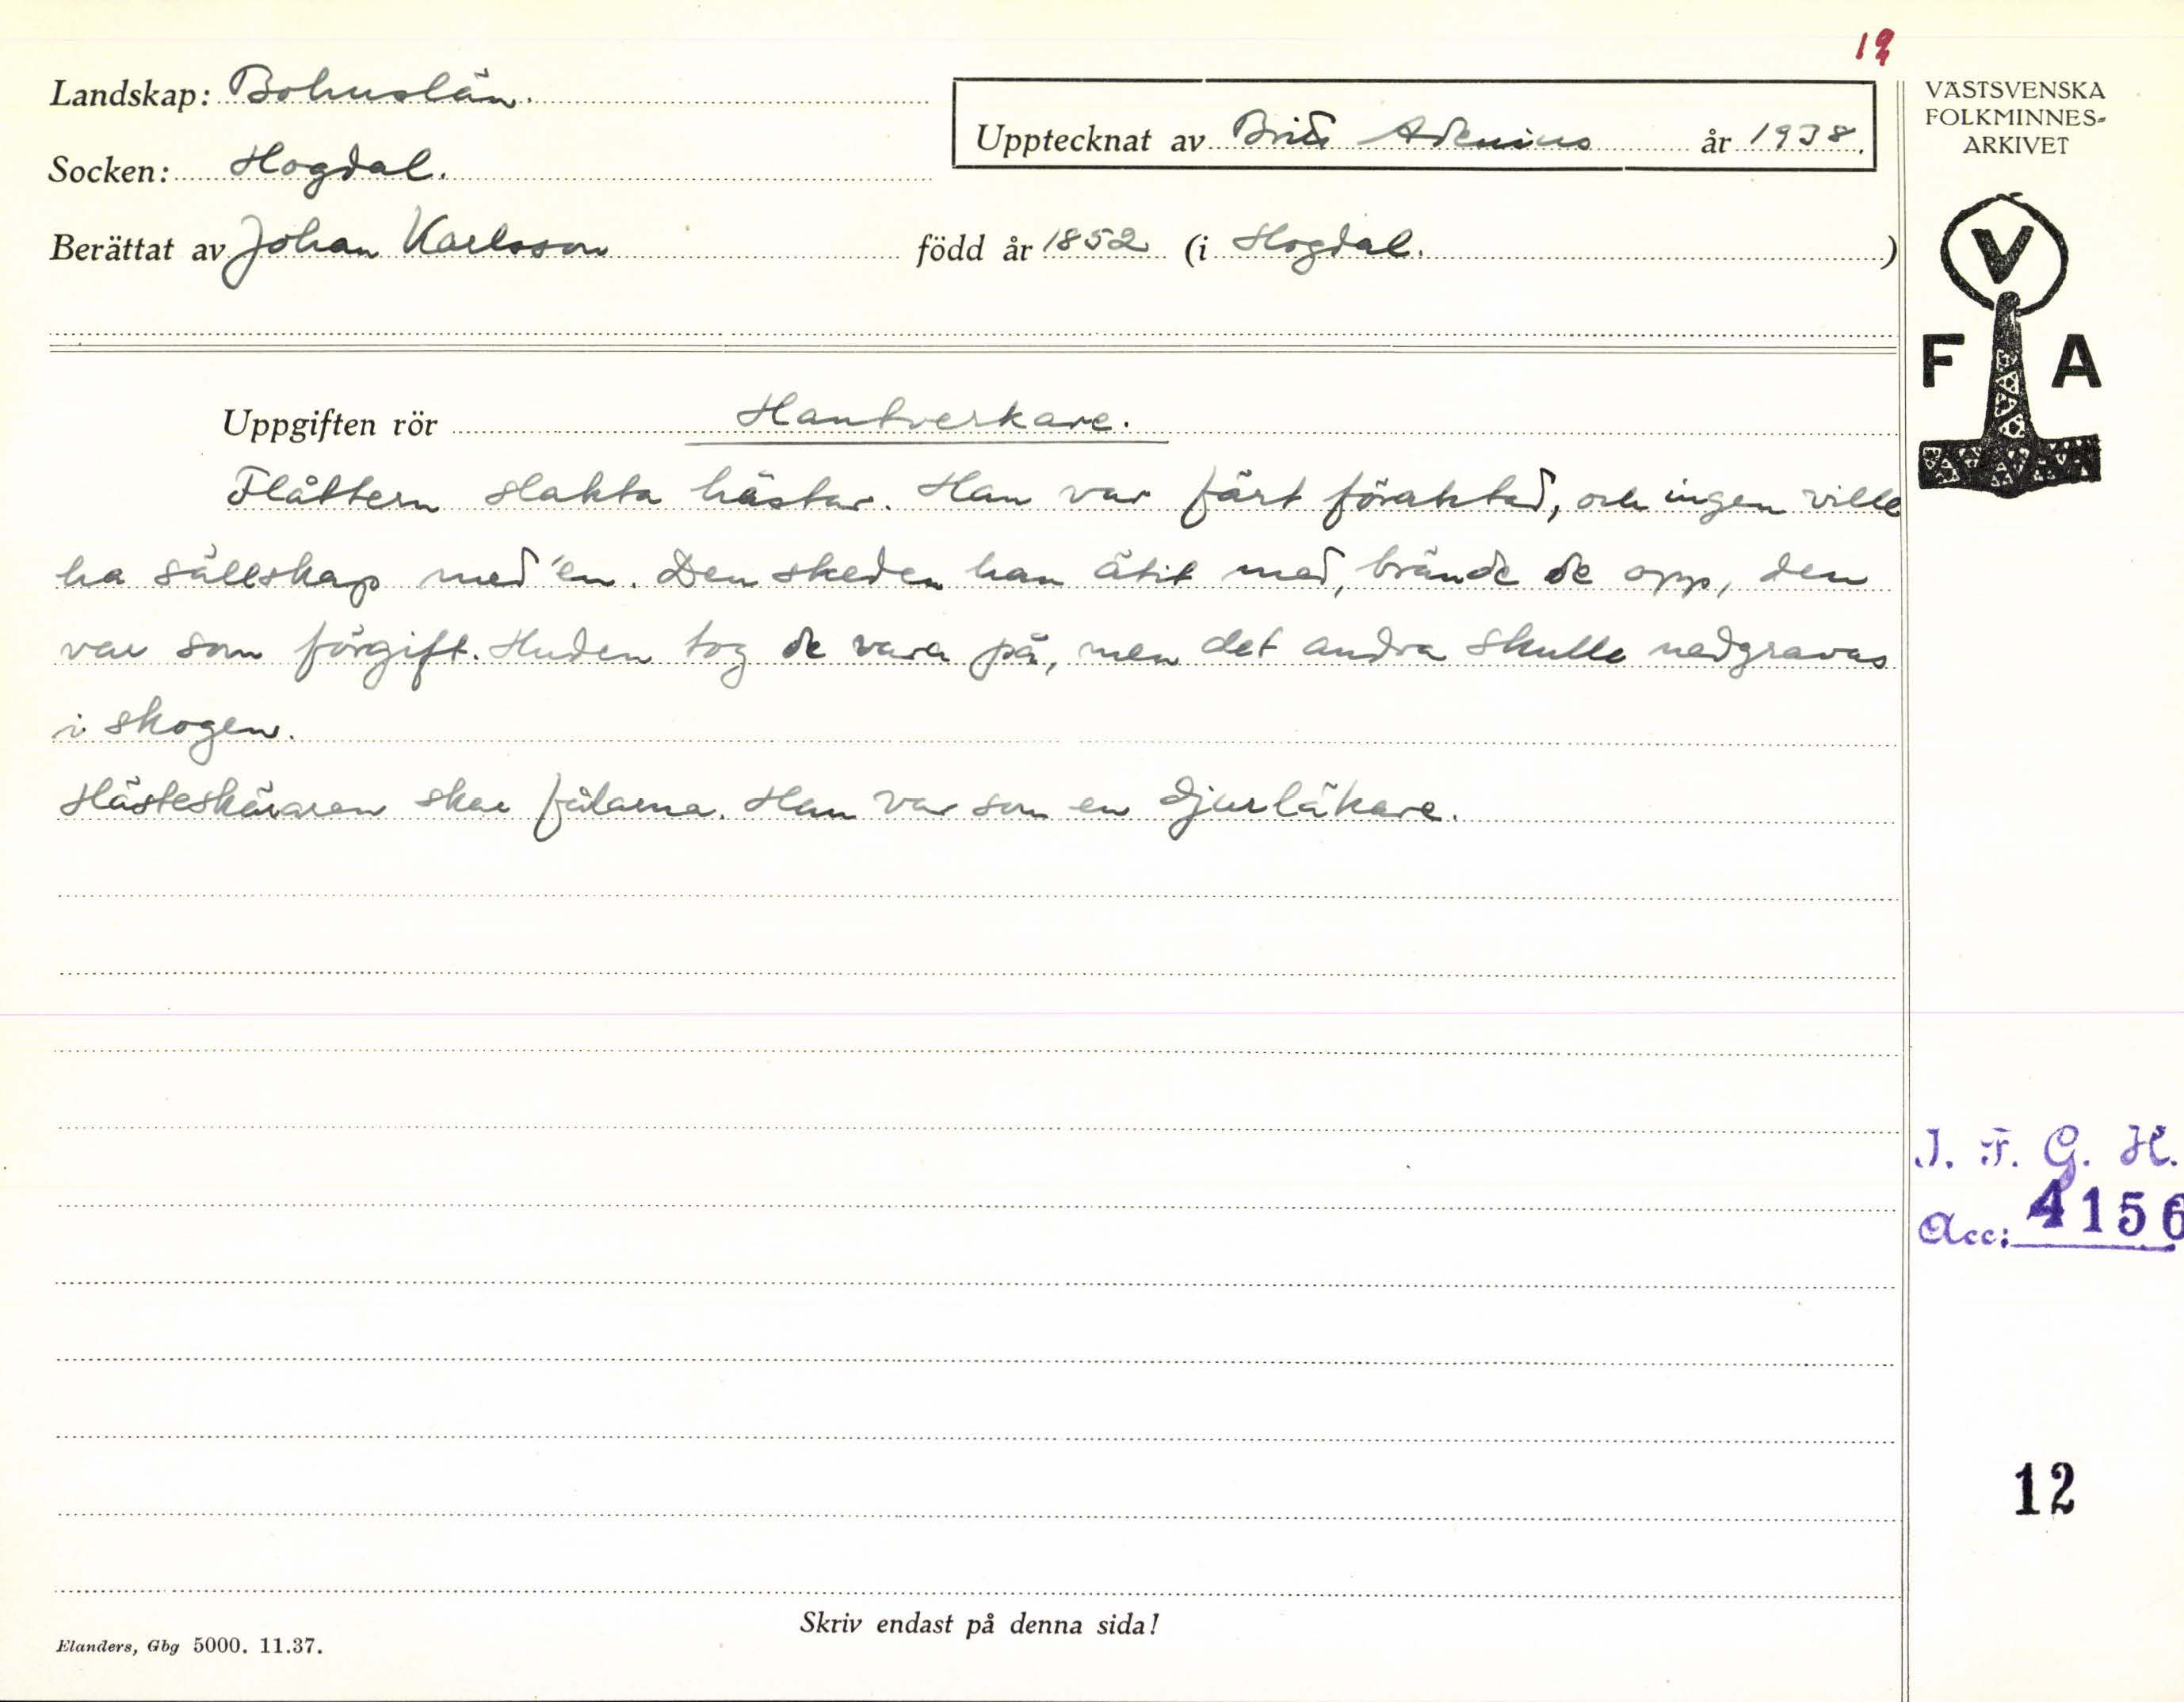 12
Landskap: Bohuslän.
Socken: Hogdal.
Berättat av Johan Karlsson född år 1852 (i Hogdal.)
Upptecknat av Brita Arenius år 1938.
VÄSTSVENSKA
FOLKMINNES-
ARKIVET
V
F A
Uppgiften rör Hantverkare.
Flåttern slakta hästar. Han var färt föraktad, och ingen ville
ha sällskap med'en. Den skeden han ätit med, brände de opp, den
var som förgift. Huden tog de vara på, men det andra skulle nedgravas
i skogen.
Hästeskäraren skar fålarna. Han var som en djurläkare.
J. F. G. H.
Acc: 4156
12
Skriv endast på denna sida!
Elanders, Gbg 5000. 11.37.